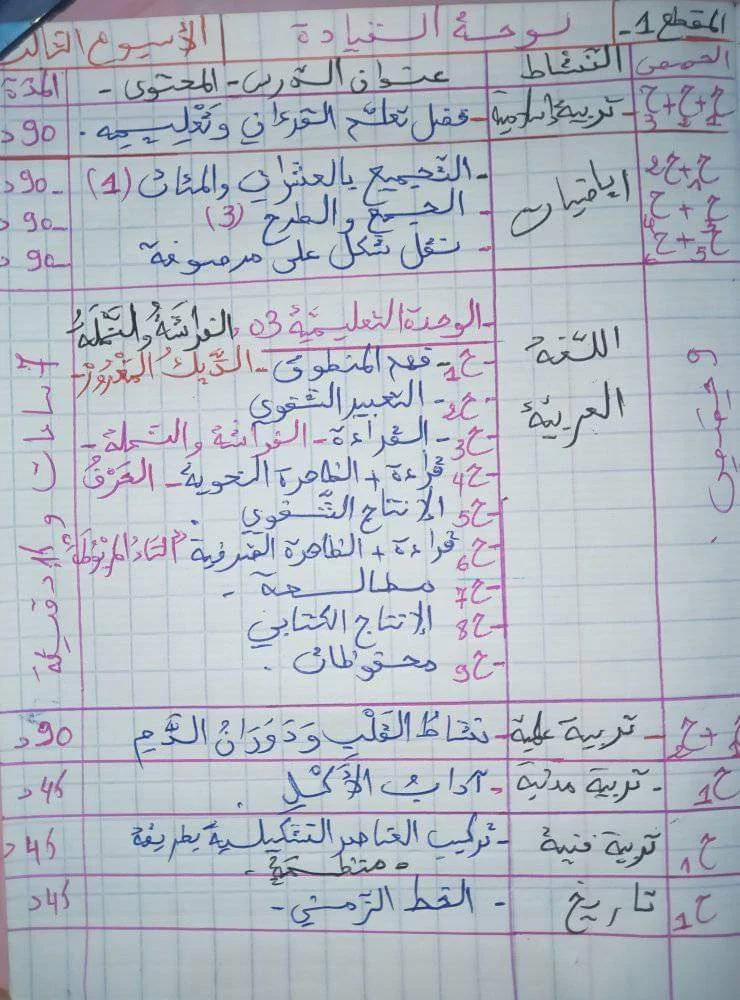 المقطع 1- لوحة القيادة الأسبوع الثالث
الحصص النشاط عنوان الدرس - المحتوى - المدة
ح1+ح2+ح3 تربية إسلامية - فضل تعلم القرءان وتَعْليمه. 90د
ح1+ح2 - التجميع بالعشرات والمئات (1) 90د
رياضيات
ح3+ح4 - الجمع والطرح (3) 90د
ح5+ح6 - نقل شكل على مرصوفة 90د
- الوحدة التعليمية 03، الفراشَةُ والنَّملَةُ
اللغة العربية
9 حصص
- ح1- فهم المنطوق - الدِّيكُ المغْرُورْ -
- ح2- التعبير الشفوي
- ح3- القراءة - الفراشة والنملة -
- ح4 قراءة + الظاهرة النحوية - الحَرْفُ
- ح5 الإنتاج الشَّفوي.
- ح6 قراءة + الظاهرة الصرفية "التاءُ المَرْبُوطَة"
- ح7 مطالعة -
- ح8 الإنتاج الكتابي
- ح9 محفوظات.
45 دقيقة
ح1+ح2 - تربية علمية - نشاطُ القَلْبِ وَدَوَرَانُ الدَّمِ 90د
ح1 - تربية مدنية - آدابُ الأَكْلِ. 45د
ح1 تربية فنية - تركيب العناصر التشكيلية بطريقة 45د
- منتظمة -
ح1 تاريخ - الخط الزّمني - 45د